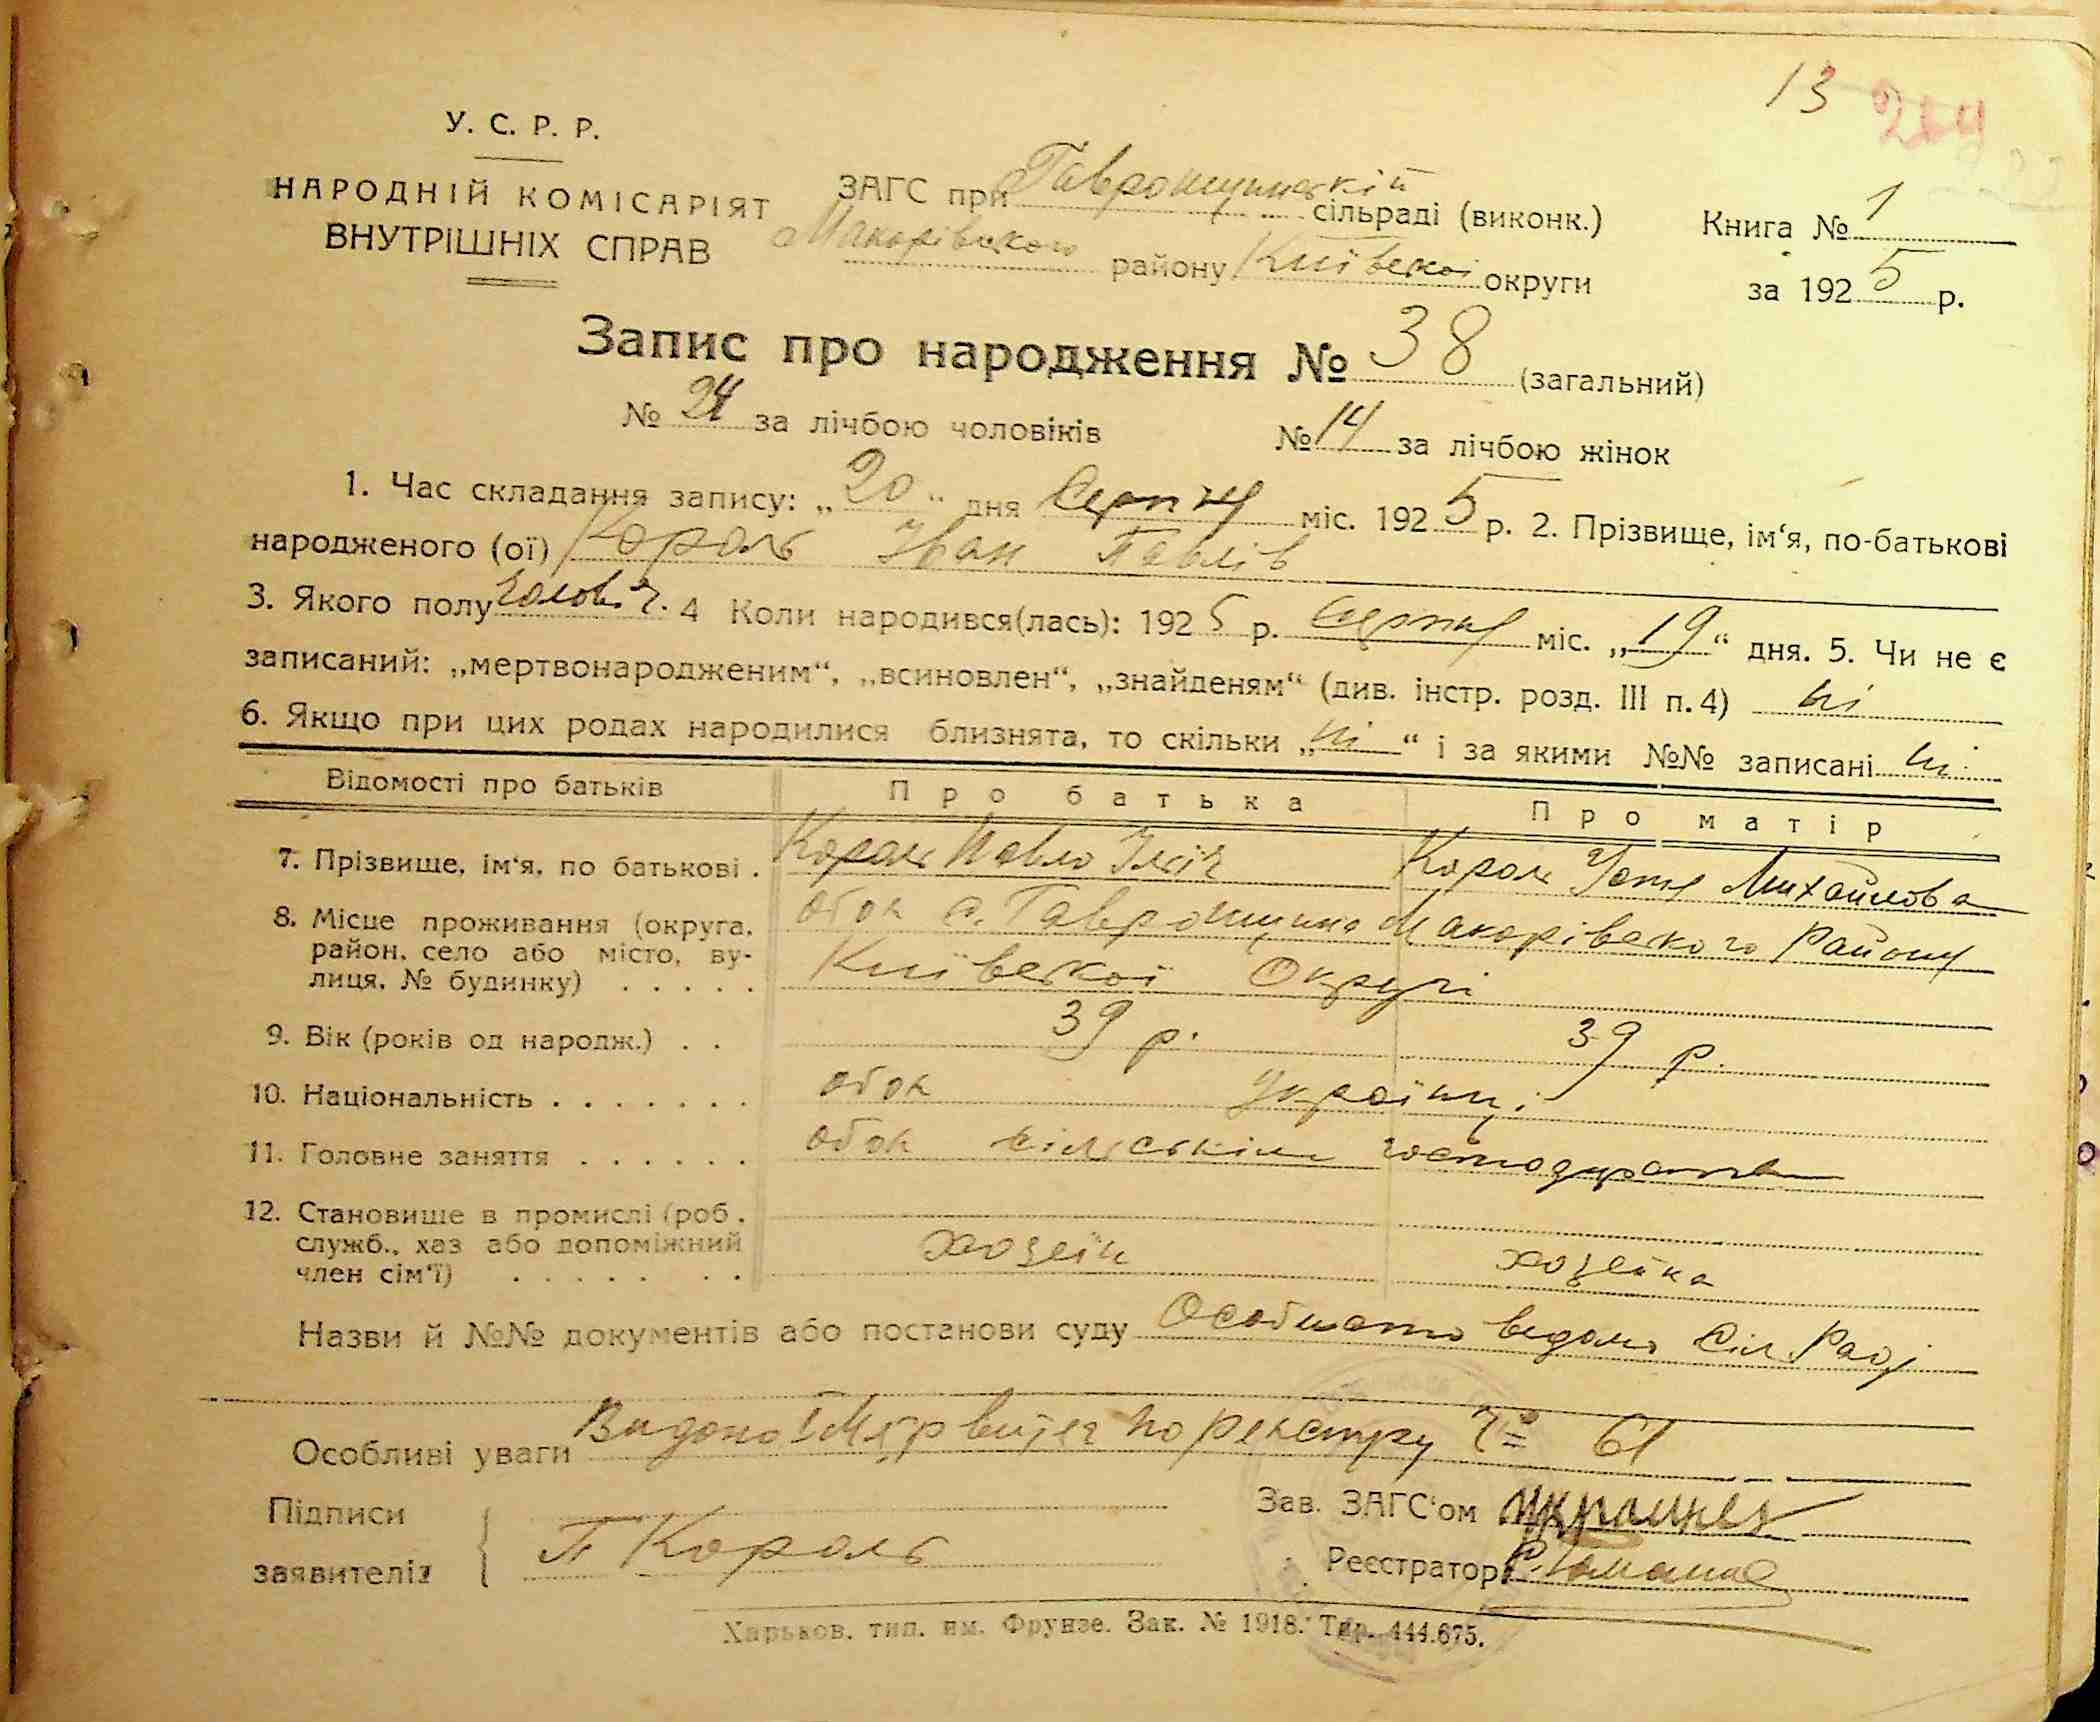 13
У. С. Р. Р.
НАРОДНІЙ КОМІСАРІЯТ
ВНУТРІШНІХ СПРАВ
ЗАГС при Гавронщинскій сільраді (виконк.)
Макорівского району Київскої округи
Книга № 1
за 1925 р.
Запис про народження № 38 (загальний)
№ 24 за лічбою чоловіків № 14 за лічбою жінок
1. Час складання запису: „20“ дня Серпня міс. 1925 р. 2. Прізвище, ім‘я, по-батькові
народженого (ої) Король Іван Павлів
3. Якого полу Чоловіч. 4 Коли народився(лась): 1925 р. Серпня міс. „19“ дня. 5. Чи не є
записаний: „мертвонародженим“, „всиновлен“, „знайденям“ (див. інстр. розд. III п. 4) ні
6. Якщо при цих родах народилися близнята, то скільки „ні“ і за якими №№ записані ні
Відомості про батьків Про батька Про матір
7. Прізвище, ім‘я, по батькові . Король Павло Ілліч Король Устя Михайлова
8. Місце проживання (округа, обох с. Гавронщина Макорівского Району
район, село або місто, ву-
лиця, № будинку) . . . . . Київскої Округі
9. Вік (років од народж.) . . 39 р. 39 р.
10. Національність . . . . . . . обох Українці
11. Головне заняття . . . . . . обох сільським господарством
12. Становище в промислі (роб.
служб., хаз або допоміжний
член сім‘ї) . . . . . . . хозеїн хозейка
Назви й №№ документів або постанови суду Особисто ведомо Сіл Раді
Особливі уваги Видоно по реєстру № 61
Підписи
заявителів П Король
Зав. ЗАГС‘ом
Реєстратор
Харьков. тип. им. Фрунзе. Зак. № 1918. Тир. 444.675.